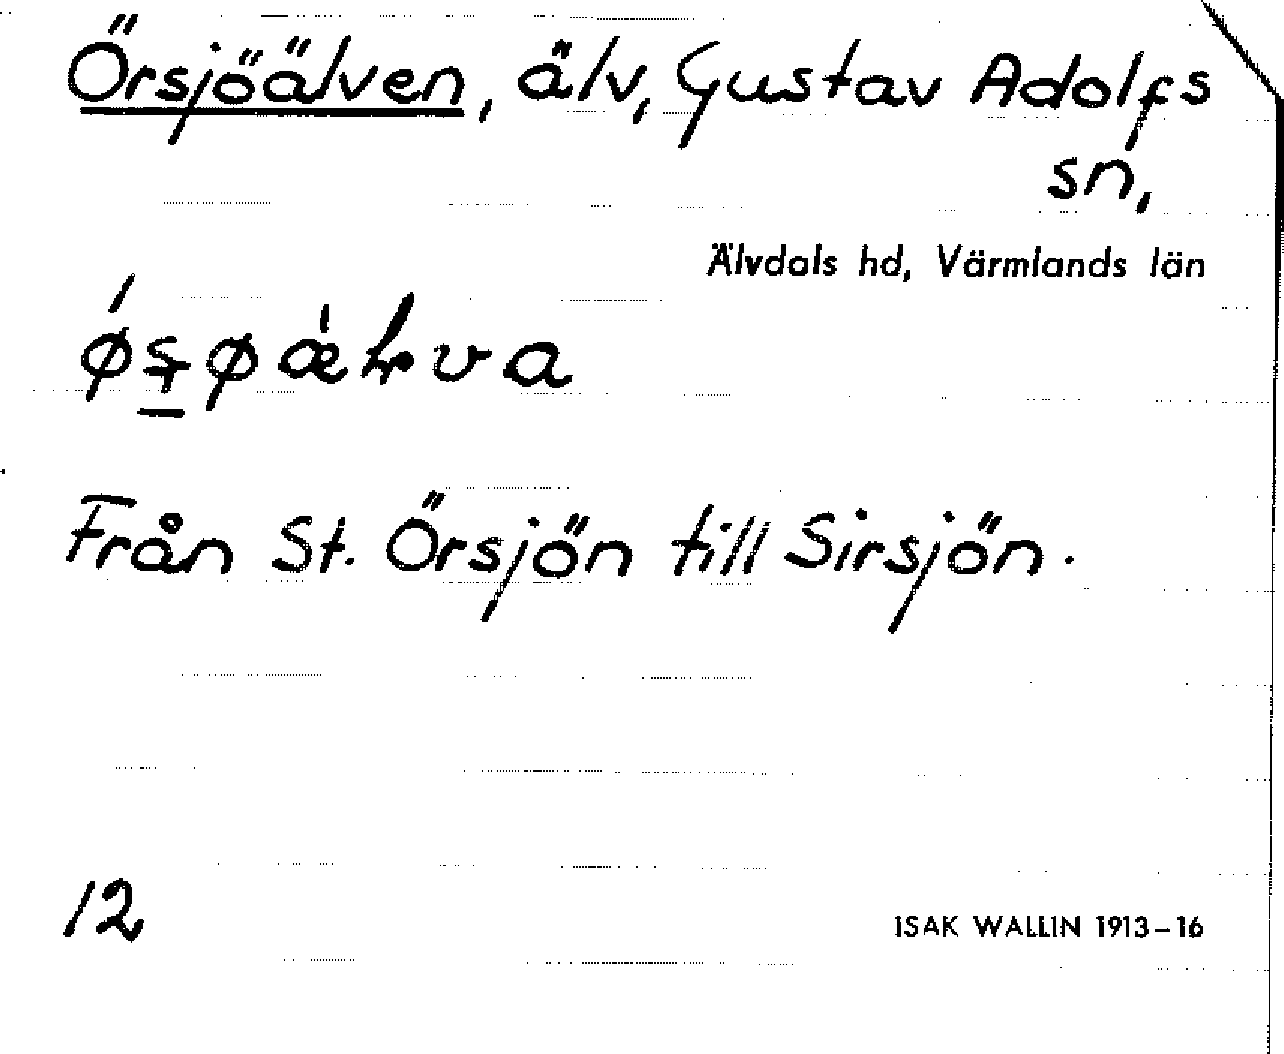 Örsjöälven, älv, Gustav Adolfs
sn,
Älvdals hd, Värmlands län
Från St. Örsjön till Sirsjön.
12
ISAK WALLIN 1913–16